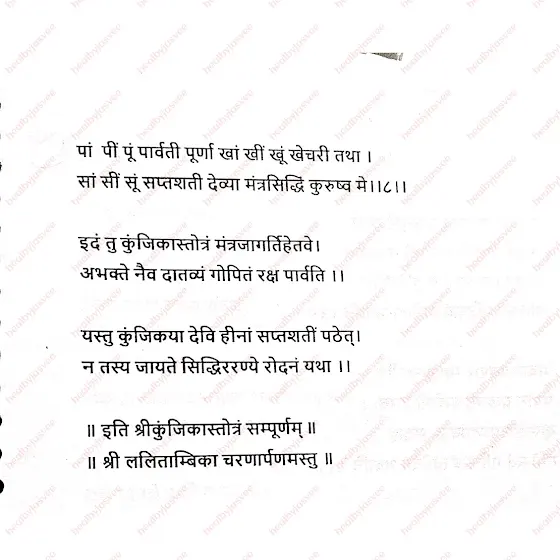 पां पीं पूं पार्वती पूर्णा खां खीं खूं खेचरी तथा ।
सां सीं सूं सप्तशती देव्या मंत्रसिद्धिं कुरुष्व मे।।८।।
इदं तु कुंजिकास्तोत्रं मंत्रजागर्तिहेतवे।
अभक्ते नैव दातव्यं गोपितं रक्ष पार्वति ।।
यस्तु कुंजिकया देवि हीनां सप्तशतीं पठेत्।
न तस्य जायते सिद्धिररण्ये रोदनं यथा ।।
॥ इति श्रीकुंजिकास्तोत्रं सम्पूर्णम् ॥
॥ श्री ललिताम्बिका चरणार्पणमस्तु ॥